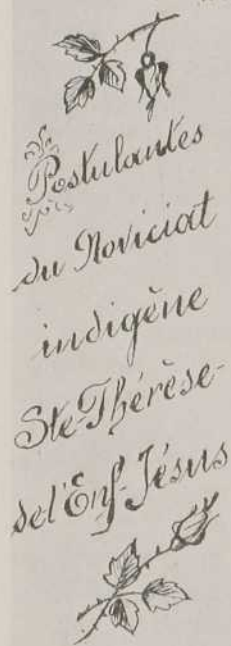 Postulantes
du Noviciat
indigène
Ste-Thérèse-
de l'Enf-Jésus